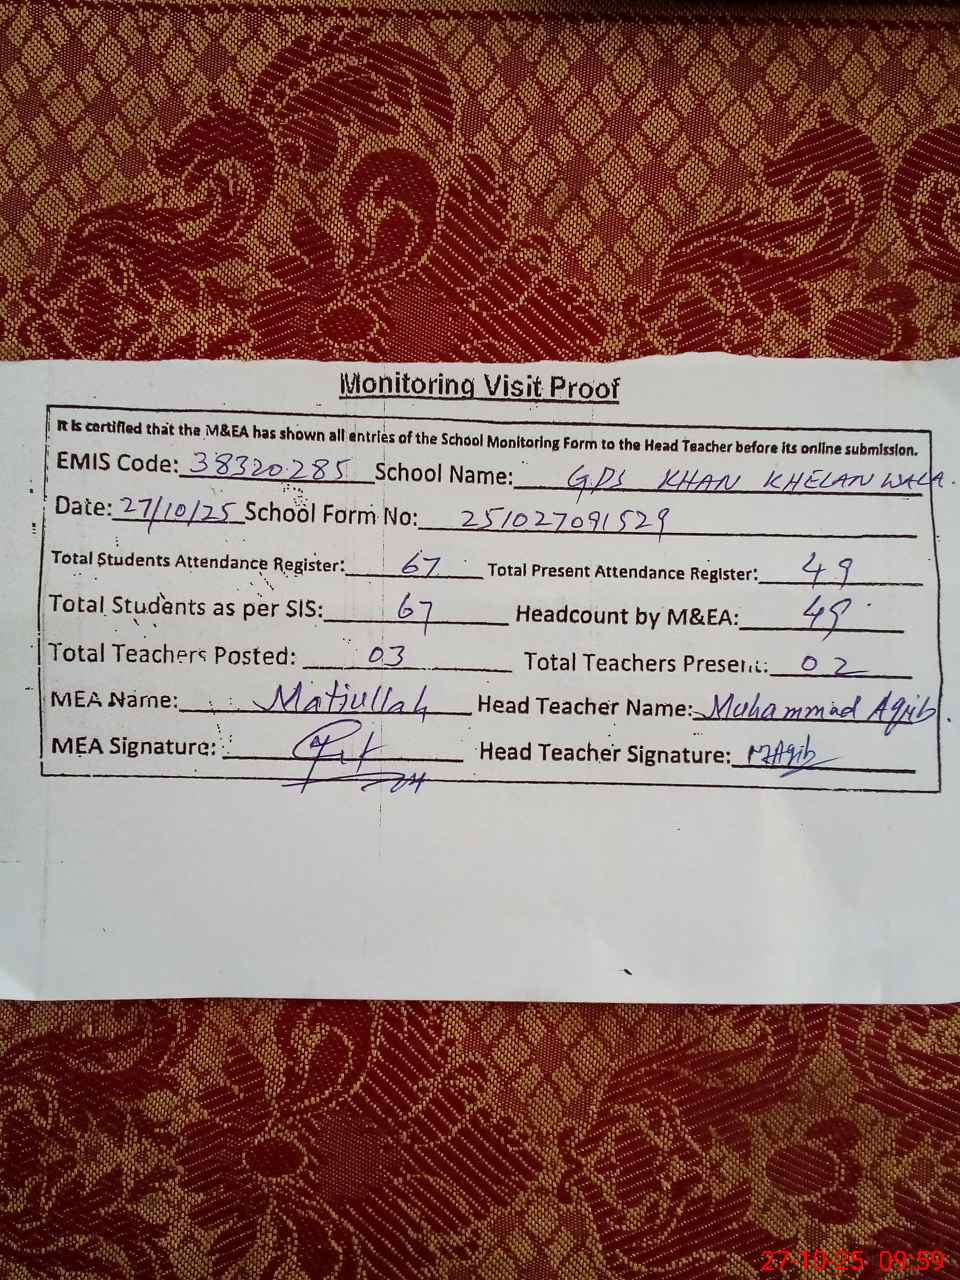 Monitoring Visit Proof
It is certified that the M&EA has shown all entries of the School Monitoring Form to the Head Teacher before its online submission.
EMIS Code: 38320285 School Name: G.P.S KHAN KHELAN WALA.
Date: 27/10/25 School Form No: 251027091529
Total Students Attendance Register: 67 Total Present Attendance Register: 49
Total Students as per SIS: 67 Headcount by M&EA: 49
Total Teachers Posted: 03 Total Teachers Present: 02
MEA Name: Matiullah Head Teacher Name: Muhammad Aqib.
MEA Signature: Head Teacher Signature: M.Aqib
27-10-25 09:59